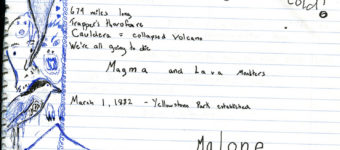 COLD!
674 miles long
Trapper's Thorofare
Cauldera = collapsed volcano
We're all going to die
Magma and Lava Monsters
March 1, 1882 - Yellowstone Park established
Malone